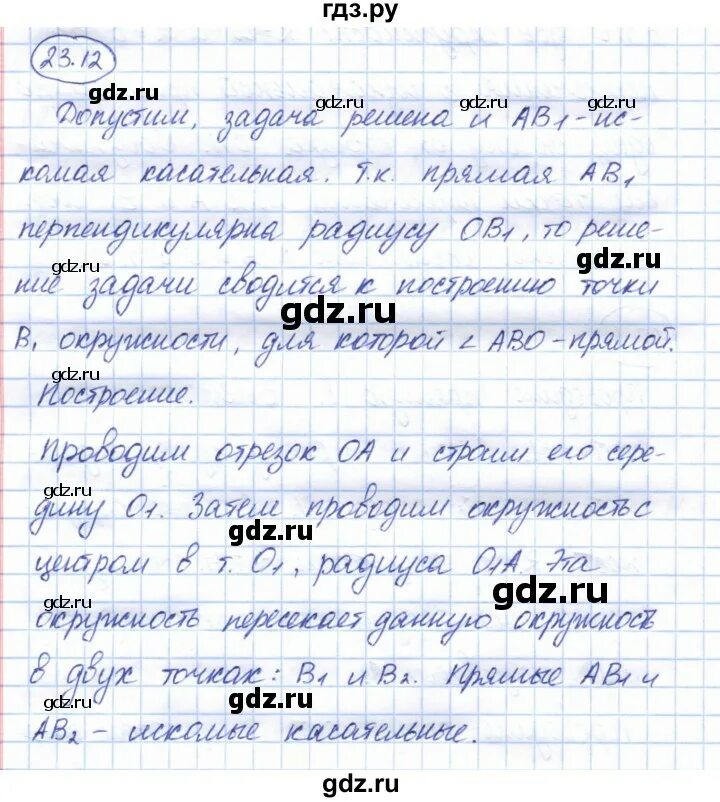 гдз.ру
23.12
gdz.ru
Допустим, задача решена и AB1 - ис-
gdz.ru gdz.ru
комая касательная. Т.к. прямая AB1
перпендикулярна радиусу OB1, то реше-
gdz.ru gdz.ru
ние задачи сводится к построению точки
gdz.ru
B1 окружности, для которой ∠ ABO - прямой.
gdz.ru
Построение.
Проводим отрезок OA и строим его сере-
gdz.ru
дину O1. Затем проводим окружность с
gdz.ru
центром в т. O1, радиуса O1A. Эта
gdz.ru gdz.ru
окружность пересекает данную окружность
в двух точках: B1 и B2. Прямые AB1 и
gdz.ru gdz.ru
AB2 - искомые касательные.
gdz.ru